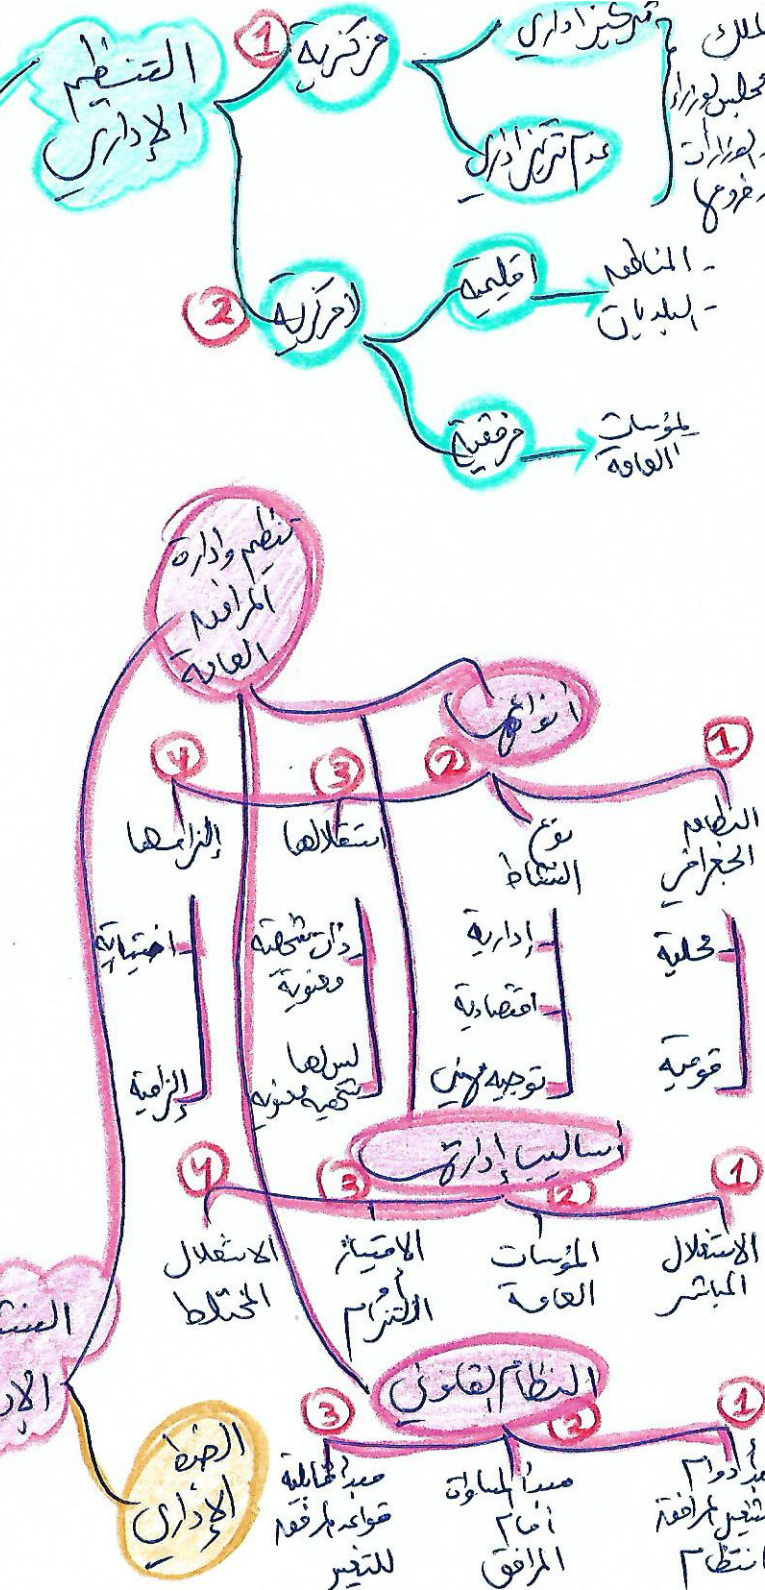 التنظيم
الإداري
1
مركزية
تركيز اداري
عدم تركيز اداري
الملك
مجلس الوزراء
الوزارات
وفروعها
2
لامركزية
اقليمية
- المناطق
- البلديات
مرفقية
المؤسسات
العامة
تنظيم وادارة
المرافق
العامة
أنواعها
1
النطاق
الجغرافي
محلية
قومية
2
نوع
النشاط
إدارية
اقتصادية
توجيه مهني
3
استقلالها
ذات شخصية
معنوية
ليس لها
شخصية معنوية
4
إلزامها
اختيارية
إلزامية
أساليب إدارتها
1
الاستغلال
المباشر
2
المؤسسات
العامة
3
الامتياز
أو
الالتزام
4
الاستغلال
المختلط
النظام القانوني
1
مبدأ دوام
المرافق
انتظام
2
مبدأ المساواة
أمام
المرافق
3
مبدأ قابلية
قواعد المرافق
للتغير
الضبط
الإداري